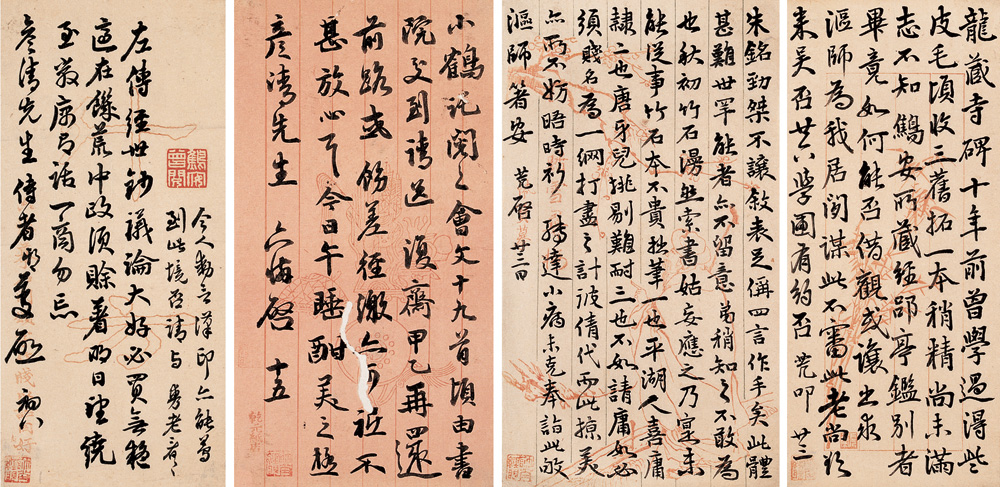 龍藏寺碑十年前曾學過得些
皮毛頃收三舊拓一本稍精尚未滿
志不知鷦安所藏經郘亭鑑別者
畢竟如何能否借觀或讓出求
漚師為我居間謀此不審此老尚欲
来吴否廿八學圃有約否 叩 廿三
朱銘勁桀不讓敘表足偁四言作手矣此體
甚難世罕能者亦不留意弟稍知之不敢為
也秋初竹石漫索書姑妄應之乃寔未
能從事竹石本不貴拙筆一也平湖人喜庸
隸二也唐身兒挑剔難耐三也不如請庸如必
須賤名為一網打盡之計波倩代而此掠美
亦不妨晤時祈 轉達小病未克奉詣此敬
漚師箸安 啓 廿二日
小鶴託閱之會文十九首頃由書
院交到請送 復齋甲乙再還
前路或飭差徑繳亦可 社不
甚放心耳今日午睡酣美之極
彥清先生 六悔啓 十五
左傳經世鈔議論大好必買無疑
這在饑荒中政須賒著明日望繞
至敝寓話一商勿忘
彥清先生 傳者 初八
今人動言漢印亦能
到此境否請與 老言之
鷦安曾閱